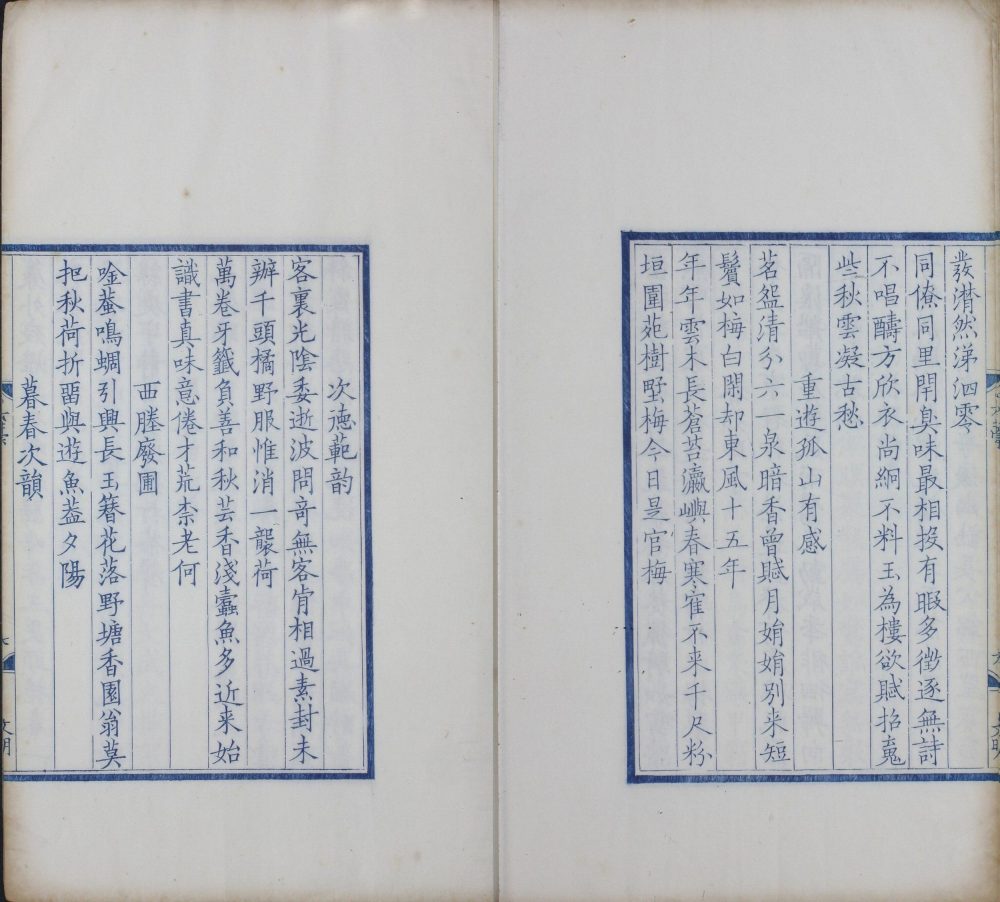 發潸然涕泗零
同僚同里閈臭味最相投有暇多徵逐無詩
不唱醻方欣衣尚絅不料玉為樓欲賦招䰟
些秋雲凝古愁
重遊孤山有感
茗盌清分六一泉暗香曾賦月娟娟別来短
鬢如梅白閒却東風十五年
年年雲木長蒼苔瀛嶼春寒寉不来千尺粉
垣圍苑樹墅梅今日是官梅
次德範韵
客裏光陰委逝波問竒無客肯相過素封未
辦千頭橘野服惟消一襲荷
萬卷牙籖負善和秋芸香淺蠧魚多近来始
識書真味意倦才荒柰老何
西塍廢圃
唫蛬鳴蜩引興長玉簪花落野塘香園翁莫
把秋荷折畱與遊魚葢夕陽
暮春次韻